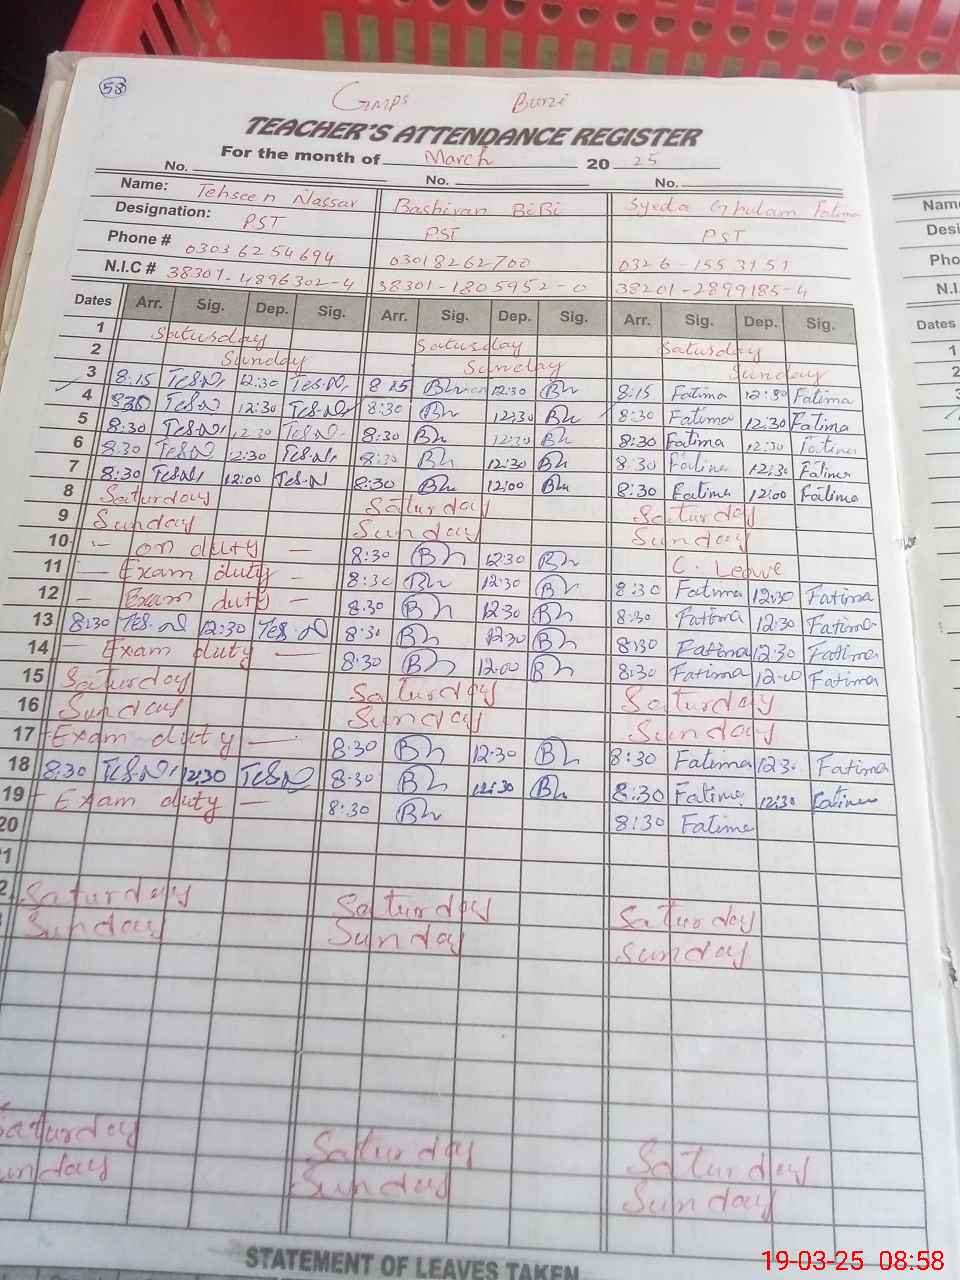 58
GMPS Burzi
TEACHER'S ATTENDANCE REGISTER
For the month of March 20 25
No. No. No.
Name: Tehseen Nassar Bashiran BiBi Syeda Ghulam Fatima
Designation: PST PST PST
Phone # 0303 6254694 03018262700 0326-1553151
N.I.C # 38301-4896302-4 38301-1805952-0 38201-2899185-4
Dates Arr. Sig. Dep. Sig. Arr. Sig. Dep. Sig. Arr. Sig. Dep. Sig.
1 Saturday Saturday Saturday
2 Sunday Sunday Sunday
3 8:15 Tes.N 12:30 Tes.N 8:15 Bh 12:30 Bh 8:15 Fatima 12:30 Fatima
4 8:30 Tes.N 12:30 Tes.N 8:30 Bh 12:30 Bh 8:30 Fatima 12:30 Fatima
5 8:30 Tes.N 12:30 Tes.N 8:30 Bh 12:30 Bh 8:30 Fatima 12:30 Fatima
6 8:30 Tes.N 12:30 Tes.N 8:30 Bh 12:30 Bh 8:30 Fatima 12:30 Fatima
7 8:30 Tes.N 12:00 Tes.N 8:30 Bh 12:00 Bh 8:30 Fatima 12:00 Fatima
8 Saturday Saturday Saturday
9 Sunday Sunday Sunday
10 - on duty - 8:30 Bh 12:30 Bh C. Leave
11 - Exam duty - 8:30 Bh 12:30 Bh 8:30 Fatima 12:30 Fatima
12 - Exam duty - 8:30 Bh 12:30 Bh 8:30 Fatima 12:30 Fatima
13 8:30 Tes.N 12:30 Tes.N 8:30 Bh 12:30 Bh 8:30 Fatima 12:30 Fatima
14 - Exam duty - 8:30 Bh 12:00 Bh 8:30 Fatima 12:00 Fatima
15 Saturday Saturday Saturday
16 Sunday Sunday Sunday
17 - Exam duty - 8:30 Bh 12:30 Bh 8:30 Fatima 12:30 Fatima
18 8:30 Tes.N 12:30 Tes.N 8:30 Bh 12:30 Bh 8:30 Fatima 12:30 Fatima
19 - Exam duty - 8:30 Bh 8:30 Fatima
20
21
Saturday Saturday Saturday
Sunday Sunday Sunday
Saturday Saturday Saturday
Sunday Sunday Sunday
STATEMENT OF LEAVES TAKEN
19-03-25 08:58
Name
Desi
Pho
N.I.
Dates
1
2
3